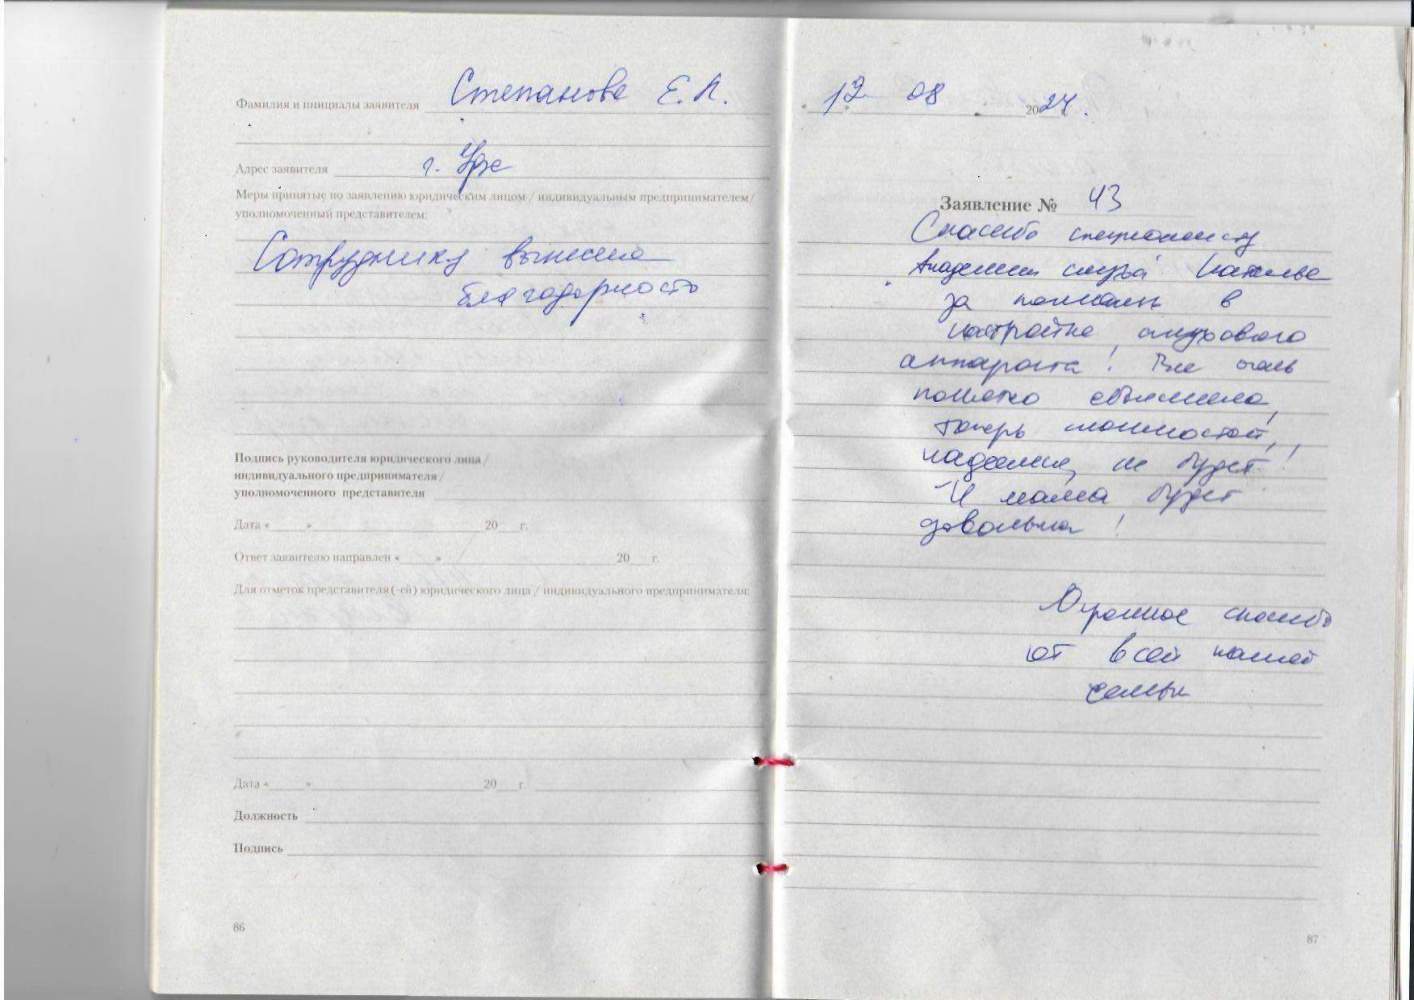 Фамилия и инициалы заявителя Степанова Е.А.
Адрес заявителя г. Уфа
Меры принятые по заявлению юридическим лицом / индивидуальным предпринимателем /
уполномоченный представителем:
Сотруднику вынесена
благодарность
Подпись руководителя юридического лица /
индивидуального предпринимателя /
уполномоченного представителя
Дата « » 20 г.
Ответ заявителю направлен « » 20 г.
Для отметок представителя (-ей) юридического лица / индивидуального предпринимателя:
Дата « » 20 г
Должность
Подпись
86
12 08 2024.
Заявление № 43
Спасибо специалисту
Академии слуха Наталье
за помощь в
настройке слухового
аппарата! Все очень
понятно объяснила,
теперь сложностей,
надеемся, не будет!
И мама будет
довольна!
Огромное спасибо
от всей нашей
семьи
87